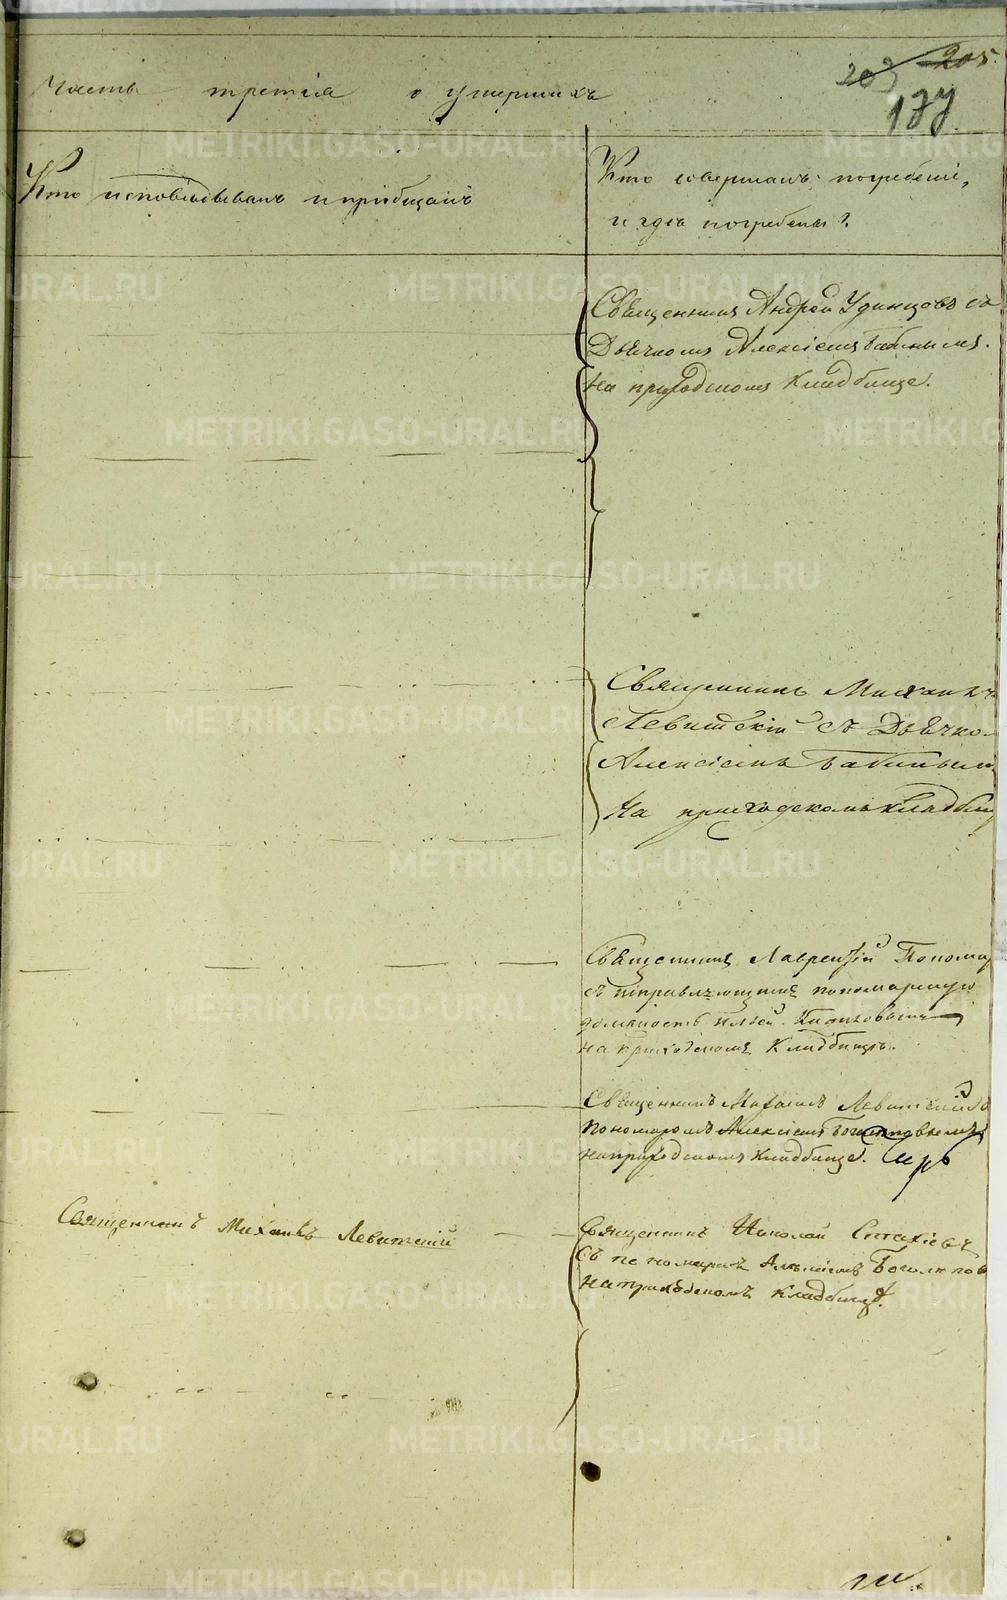 203 205.
Часть третія о умершихъ
177
Кто исповѣдывалъ и пріобщалъ
Кто совершалъ погребеніе,
и гдѣ погребены?
Священникъ Андрей Удинцовъ съ
Дьячкомъ Алексѣемъ Бабинымъ.
На приходскомъ Кладбище.
Священникъ Михаилъ
Левитскій съ Дьячко
Алексѣемъ Бабинымъ
На приходскомъ кладбищ
Священникъ Лаврентій Понома
съ исправляющимъ пономарскую
должность
на приходскомъ Кладбищѣ.
Священникъ Михаилъ Левитскій съ
пономаремъ Алексѣемъ
на приходскомъ кладбище.
Священникъ Михаилъ Левитскій
Священникъ Николай Стахіевъ
Съ пономаремъ Алексѣемъ Боголюпов
На приходскомъ кладбищѣ.
METRIKI.GASO-URAL.RU